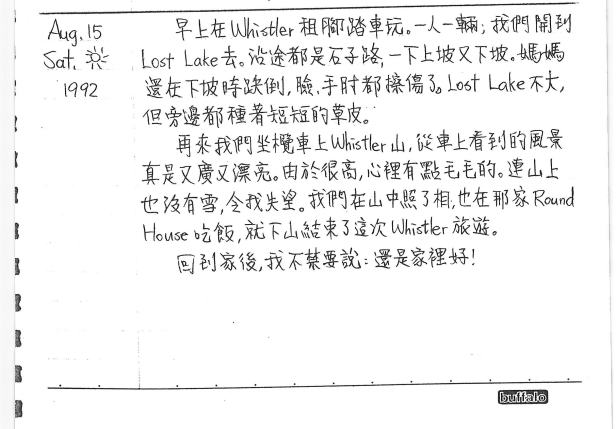 Aug. 15
Sat. ☀
1992
早上在Whistler租腳踏車玩。一人一輛；我們開到
Lost Lake去。沿途都是石子路，一下上坡又下坡。媽媽
還在下坡時跌倒，臉、手肘都擦傷了。Lost Lake不大，
但旁邊都種著短短的草皮。
再來我們坐欖車上Whistler山，從車上看到的風景
真是又廣又漂亮。由於很高，心裡有點毛毛的。連山上
也沒有雪，令我失望。我們在山中照了相，也在那家Round
House吃飯，就下山結束了這次Whistler旅遊。
回到家後，我不禁要說：還是家裡好！
buffalo